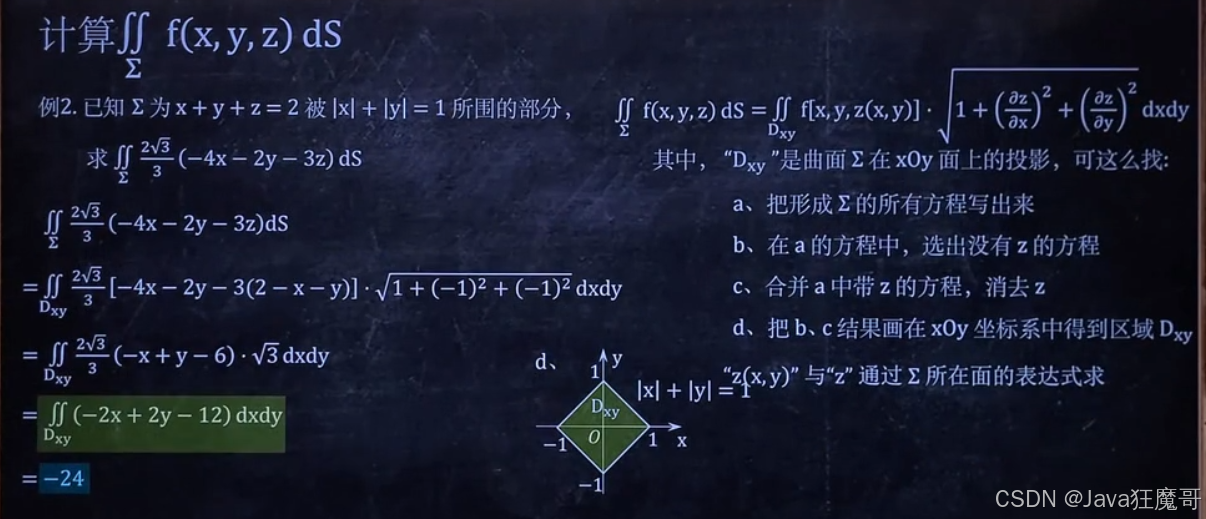 计算∬_Σ f(x, y, z) dS
例2. 已知 Σ 为 x + y + z = 2 被 |x| + |y| = 1 所围的部分，
求 ∬_Σ 2√3/3 (−4x − 2y − 3z) dS
∬_Σ 2√3/3 (−4x − 2y − 3z)dS
= ∬_Dxy 2√3/3 [−4x − 2y − 3(2 − x − y)] · √(1 + (−1)² + (−1)²) dxdy
= ∬_Dxy 2√3/3 (−x + y − 6) · √3 dxdy
= ∬_Dxy (−2x + 2y − 12) dxdy
= −24
∬_Σ f(x, y, z) dS = ∬_Dxy f[x, y, z(x, y)] · √(1 + (∂z/∂x)² + (∂z/∂y)²) dxdy
其中，“Dxy ”是曲面 Σ 在 xOy 面上的投影，可这么找:
a、把形成 Σ 的所有方程写出来
b、在 a 的方程中，选出没有 z 的方程
c、合并 a 中带 z 的方程，消去 z
d、把 b、c 结果画在 xOy 坐标系中得到区域 Dxy
“z(x, y)” 与“z” 通过 Σ 所在面的表达式求
d、
y
1
|x| + |y| = 1
Dxy
−1
O
1
x
−1
CSDN @Java狂魔哥